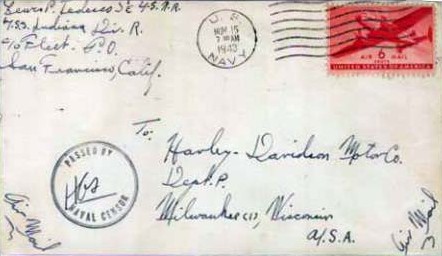 Lewis P. Tedesco S2c U.S.N.R.
U.S.S. Indiana Div. R.
c/o Fleet P.O.
San Francisco, Calif.
U. S.
NOV 15
7 30 AM
1943
NAVY
AIR 6 MAIL
CENTS
UNITED STATES OF AMERICA
To:
Harley-Davidson Motor Co.
Dept. P.
Milwaukee (1), Wisconsin
U.S.A.
PASSED BY
NAVAL CENSOR
Air Mail
Air Mail